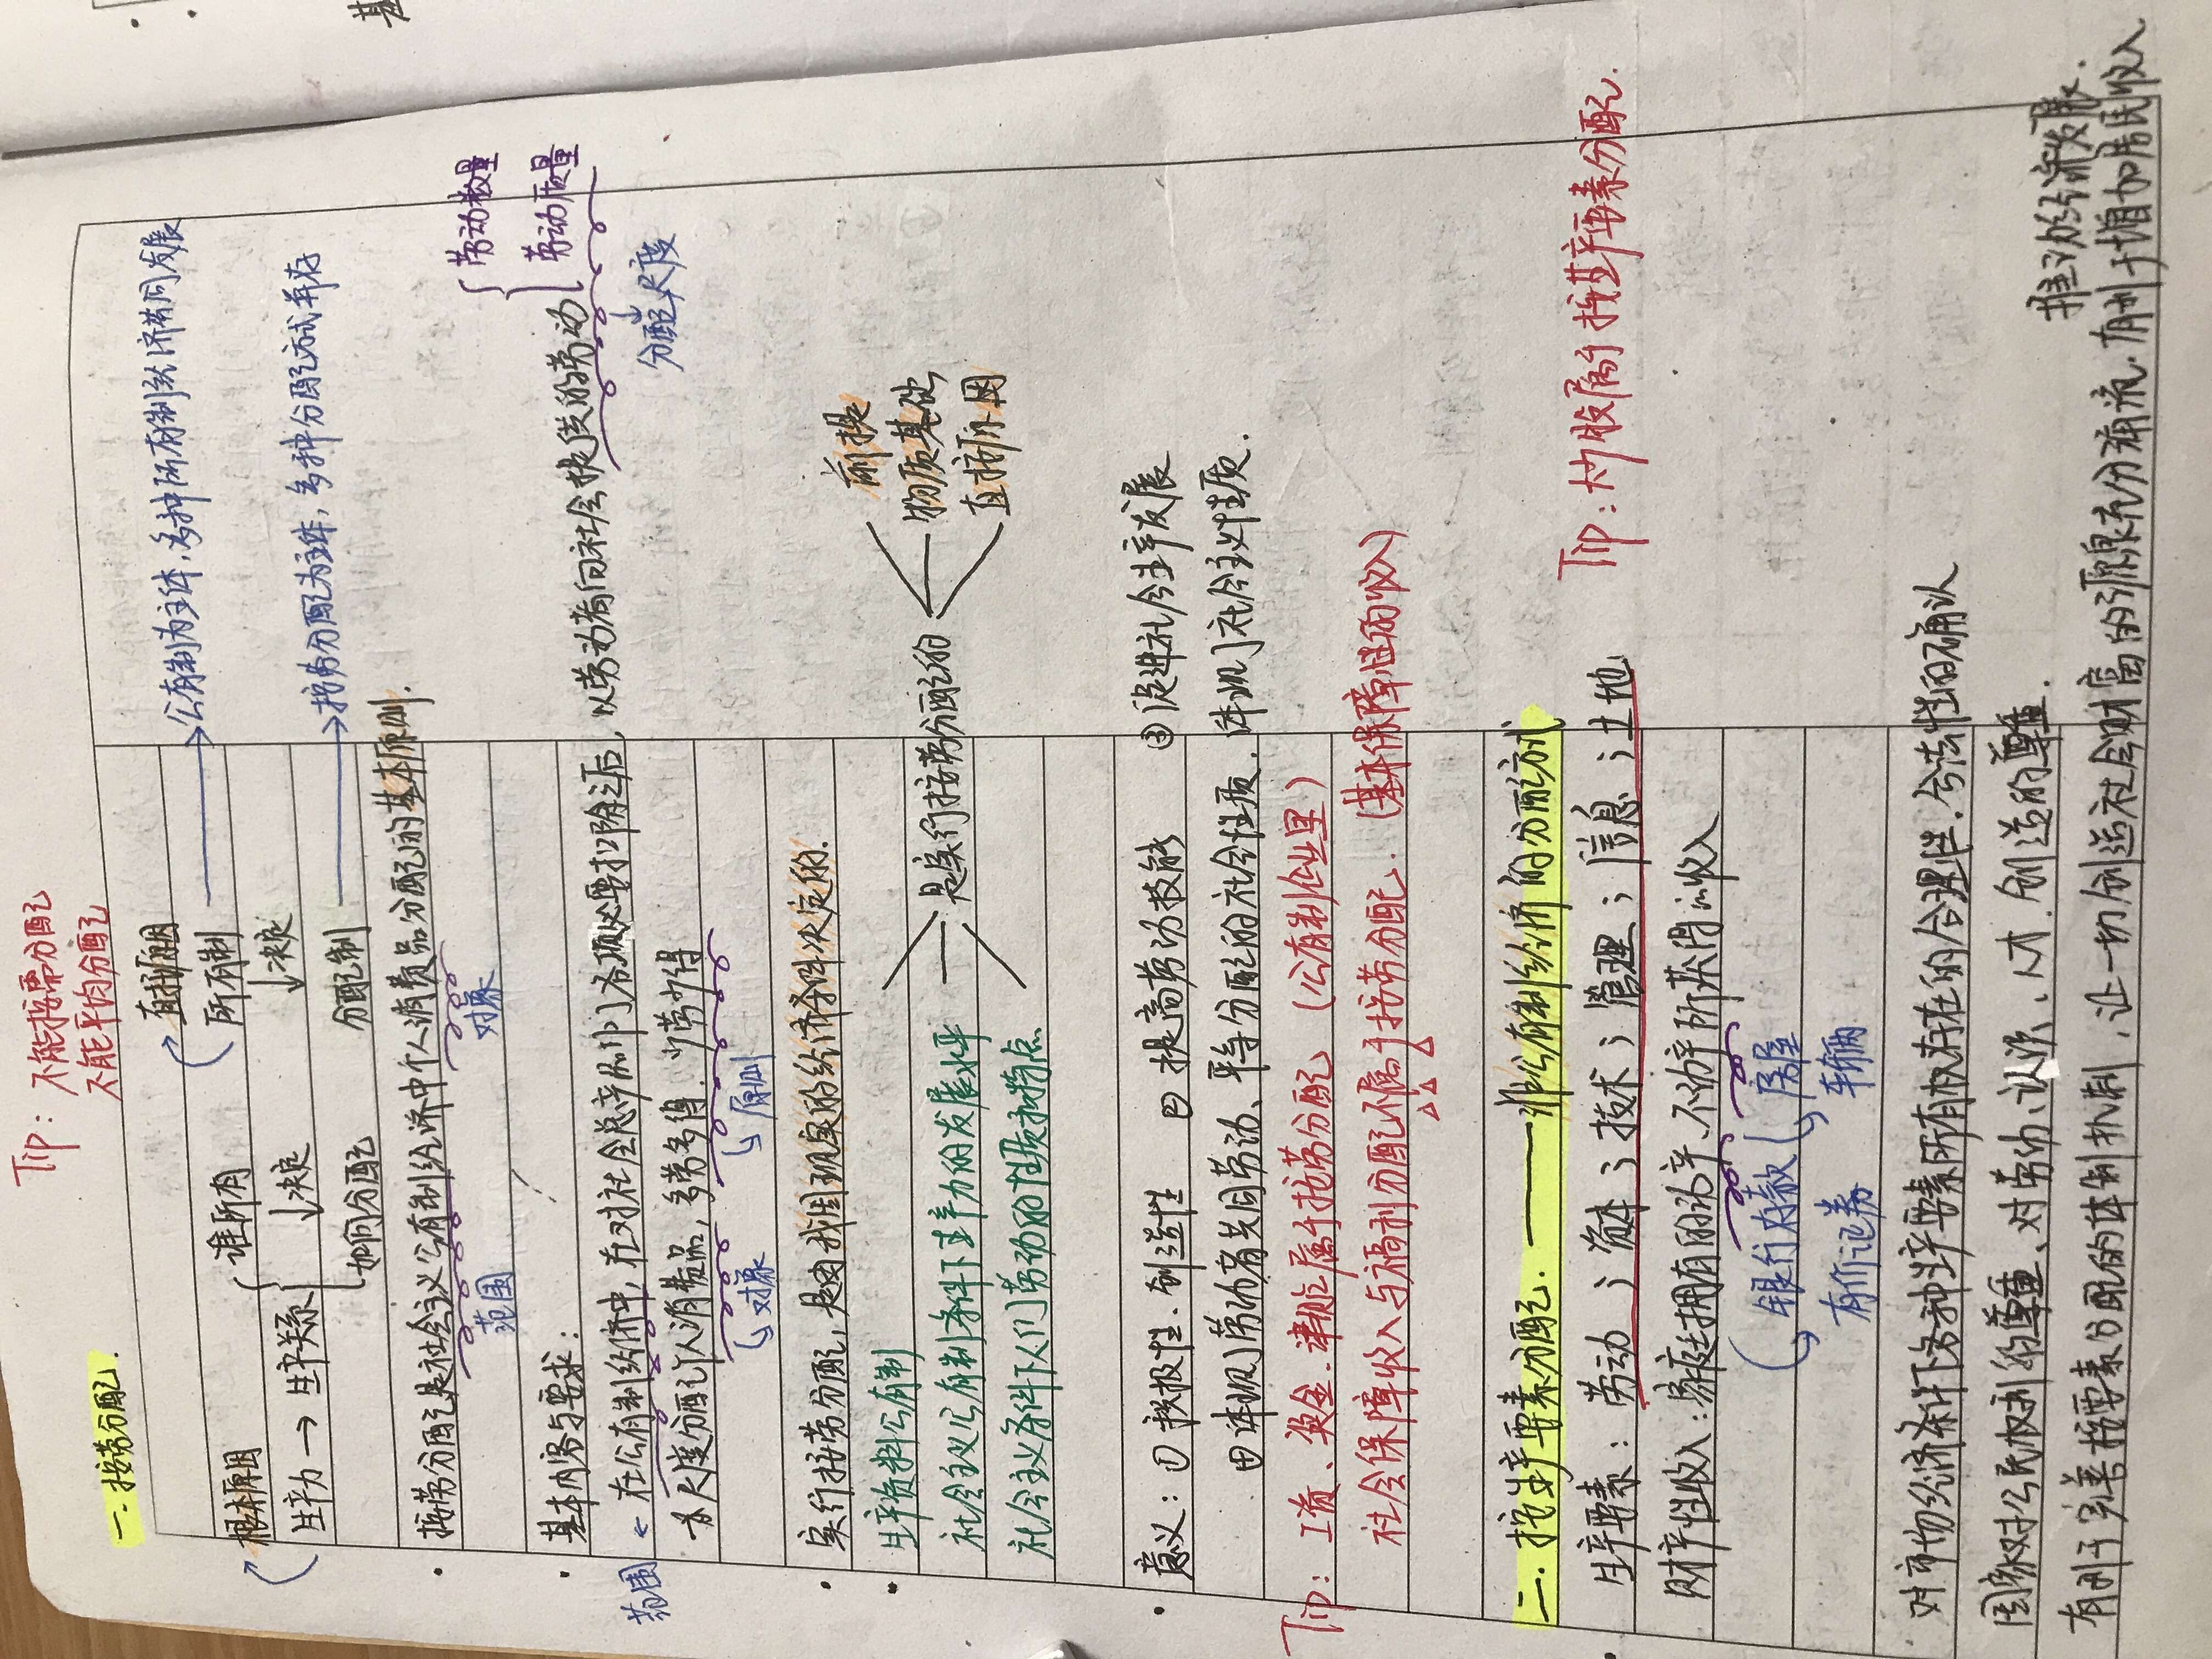 Tip: 不能按需分配
不能平均分配
一. 按劳分配.
直接原因
公有制为主体, 多种所有制经济共同发展
根本原因 谁所有 所有制
生产力 → 生产关系 ↓决定 ↓决定
如何分配 分配制
按劳分配为主体, 多种分配方式并存
按劳分配是社会主义公有制经济中个人消费品分配的基本原则.
范围 对象
劳动数量
劳动质量
基本内容与要求:
范围 ← 在公有制经济中, 在对社会总产品作了各项必要扣除之后, 以劳动者向社会提供的劳动
分配尺度
为尺度分配个人消费品, 多劳多得. 少劳少得
对象 原则
实行按劳分配, 是由我国现实的经济条件决定的.
前提
生产资料公有制
物质基础
社会主义公有制条件下生产力的发展水平 是实行按劳分配的
直接原因
社会主义条件下人们劳动的性质和特点
意义: ① 积极性、创造性 ② 提高劳动技能 ③ 促进社会生产发展
④ 体现了劳动者共同劳动、平等分配的社会性质. 体现了社会主义性质.
Tip: 工资、奖金、津贴属于按劳分配 (公有制企业里)
社会保障收入与福利分配不属于按劳分配. (基本保障性的收入)
二. 按生产要素分配. —— 非公有制经济的分配方式
生产要素: 劳动; 资本; 技术; 管理; 信息; 土地
Tip: 炒股属于按生产要素分配.
财产性收入: 家庭拥有的动产、不动产所获得的收入
银行存款 房屋
有价证券 车辆
对市场经济条件下各种生产要素所有权存在的合理性. 合法性的确认
国家对公民权利的尊重、对劳动、认识、人才. 创造的尊重.
推动经济发展.
有利于完善按要素分配的体制机制, 让一切创造社会财富的源泉充分涌流. 有利于增加居民收入.